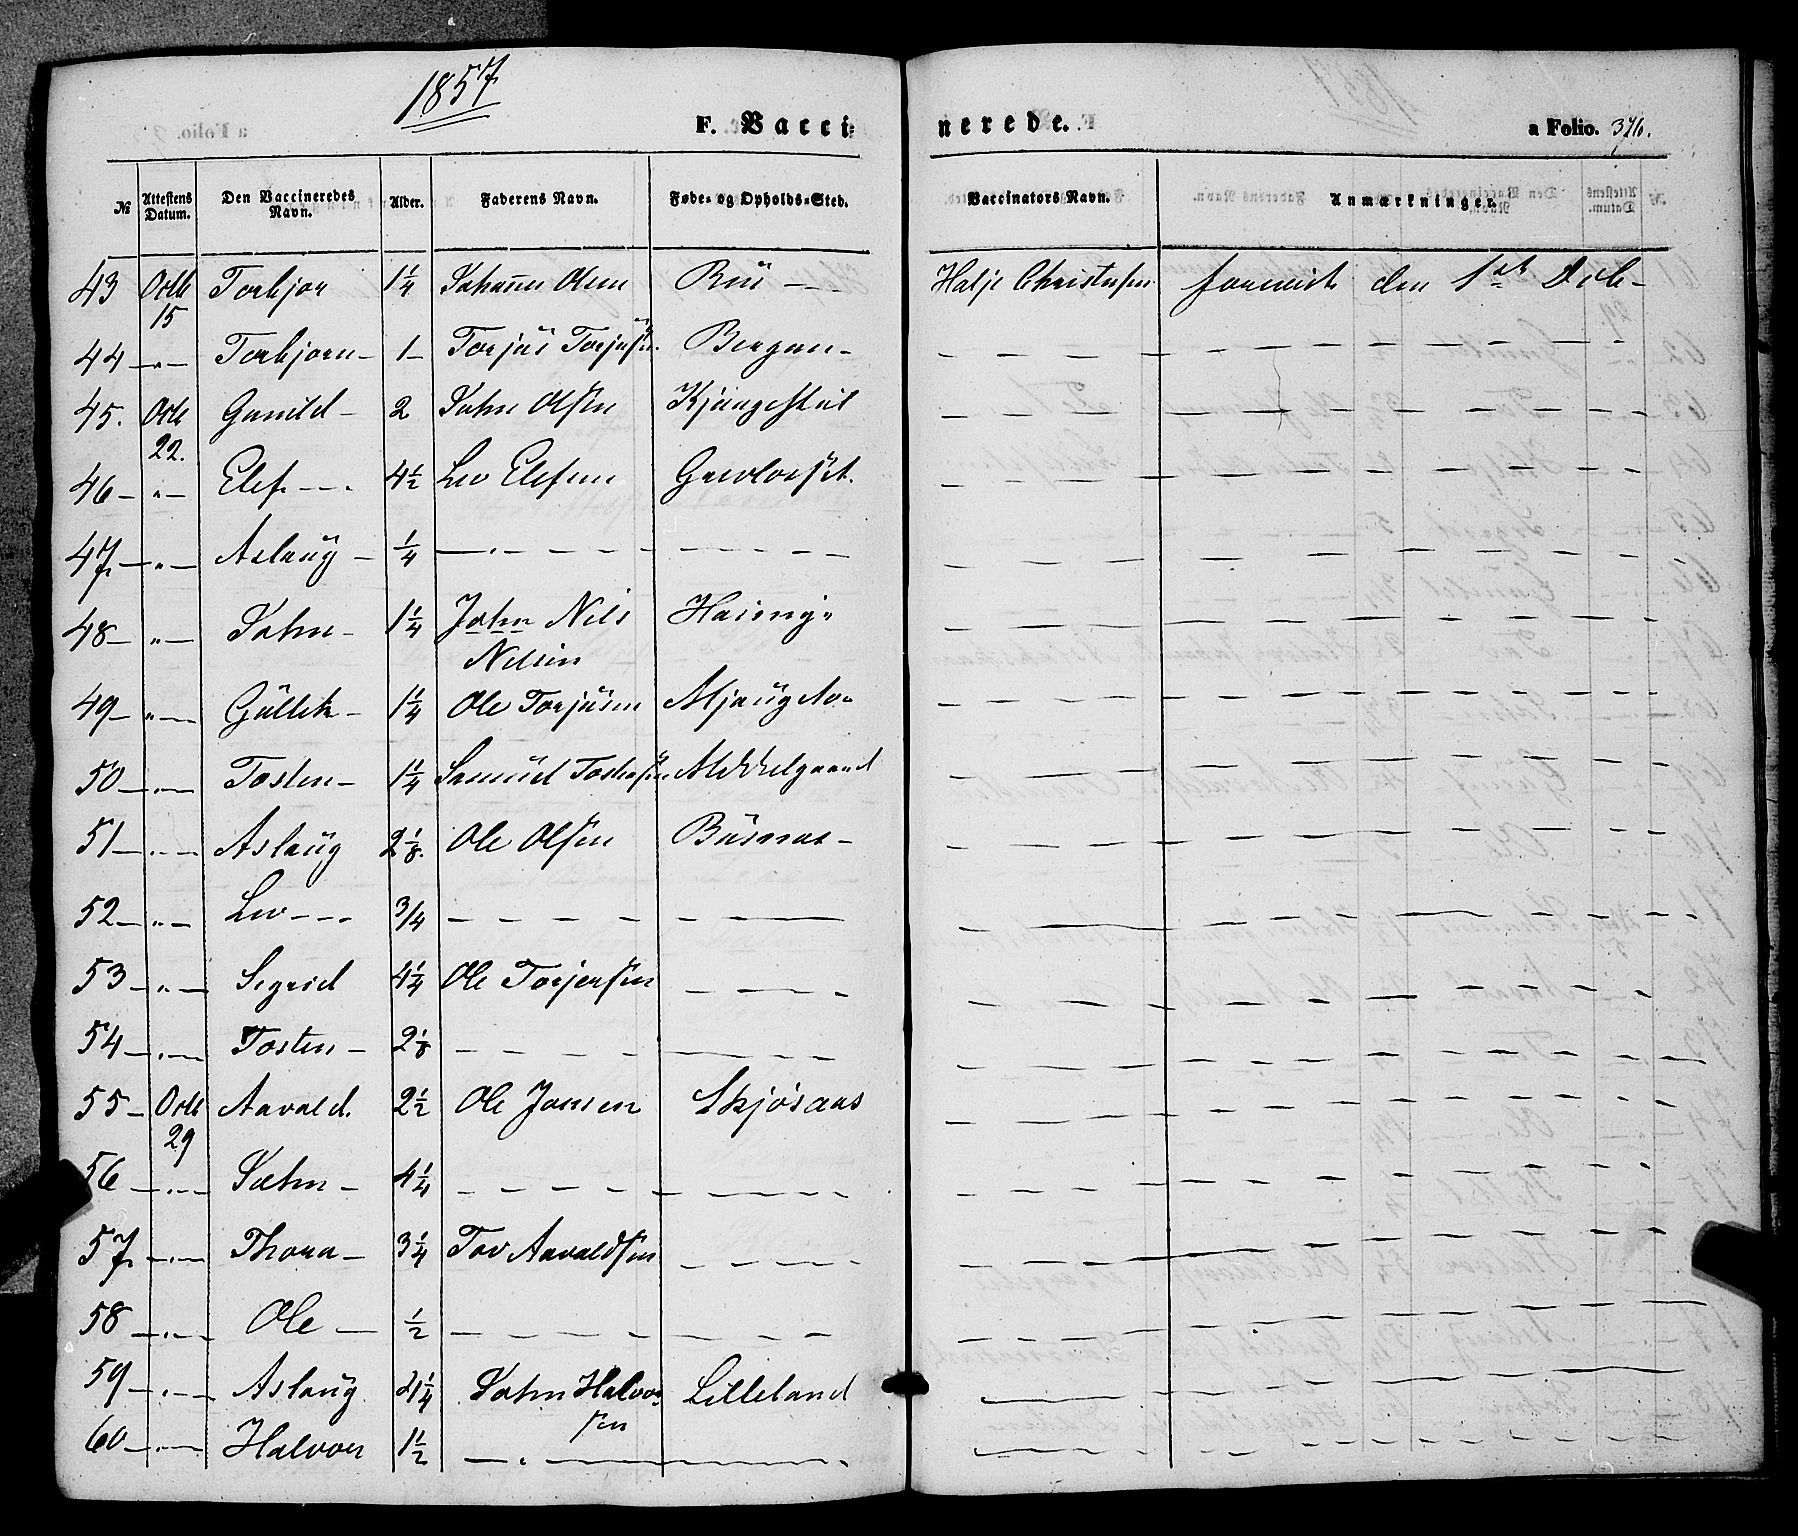 1857
F. Vacci=
nerede.
a Folio. 376.
№ Attestens Datum. Den Vaccineredes Navn. Alder. Faderens Navn. Føde- og Opholds-Sted. Vaccinators Navn. Anmærkninger.
43 Octb 15 Torbjor 1 1/4 Johannes Olsen Hatje Christensen foreviist den 1ste Octb-
44 - „ - Torbjorn - 1 - Torjus Torjusen Bergan -
45. Octb 22. Gunild - 2 John Olsen
46 - „ - Elef - - . 4 1/2 Lev Elefsen
47. - „ - Aslaug - 1/4 — . - - - - - - - - -
48 - „ - John - 1 1/4 John Nils
Nilsen
49 - „ - Gullek - 1 1/4 Ole Torjusen
50 - „ - Tosten - 1 1/4 Samuel Tostensen Mekkelgaard
51 - „ - Aslaug 2 1/8. Ole Olsen Busnes -
52 - „ - Lev - - - 3/4 - - - - - - -
53 - „ - Sigrid 4 1/4 Ole Torjersen - - - -
54 - „ - Tosten - 2 1/8 - - - - - - -
55 - Octb 29 Aavald. 2 1/2 Ole Jonsen Skjøsaas
56 - „ - John - 4 1/4 - - - - - - -
57. - „ - Thora - 3 1/4 Tov Aavaldsen - - - -
58 - „ - Ole - 1/2 - - - - - - -
59 - „ - Aslaug 21 1/4 John Halvor
sen Lilleland
60 - „ - Halvor 1 1/2 — . - - - - -